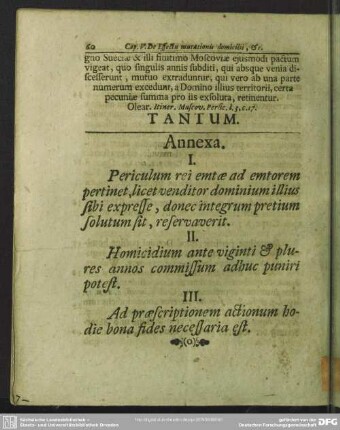 60 Cap. V. De Effectu mutationis domicilii, &c.
gno Sueciæ & illi finitimo Moscoviæ ejusmodi pactum
vigeat, quo singulis annis subditi, qui absque venia di-
scesserunt, mutuo extraduntur, qui vero ab una parte
numerum excedunt, a Domino illius territorii, certa
pecuniæ summa pro iis exsoluta, retinentur.
Olear. Itiner. Moscov. Persic. l. 3. c. 17.
TANTUM.
Annexa.
I.
Periculum rei emtæ ad emtorem
pertinet, licet venditor dominium illius
sibi expresse, donec integrum pretium
solutum sit, reservaverit.
II.
Homicidium ante viginti & plu-
res annos commissum adhuc puniri
potest.
III.
Ad præscriptionem actionum ho-
die bona fides necessaria est.
Sächsische Landesbibliothek -
Staats- und Universitätsbibliothek Dresden
gefördert von der
Deutschen Forschungsgemeinschaft
DFG